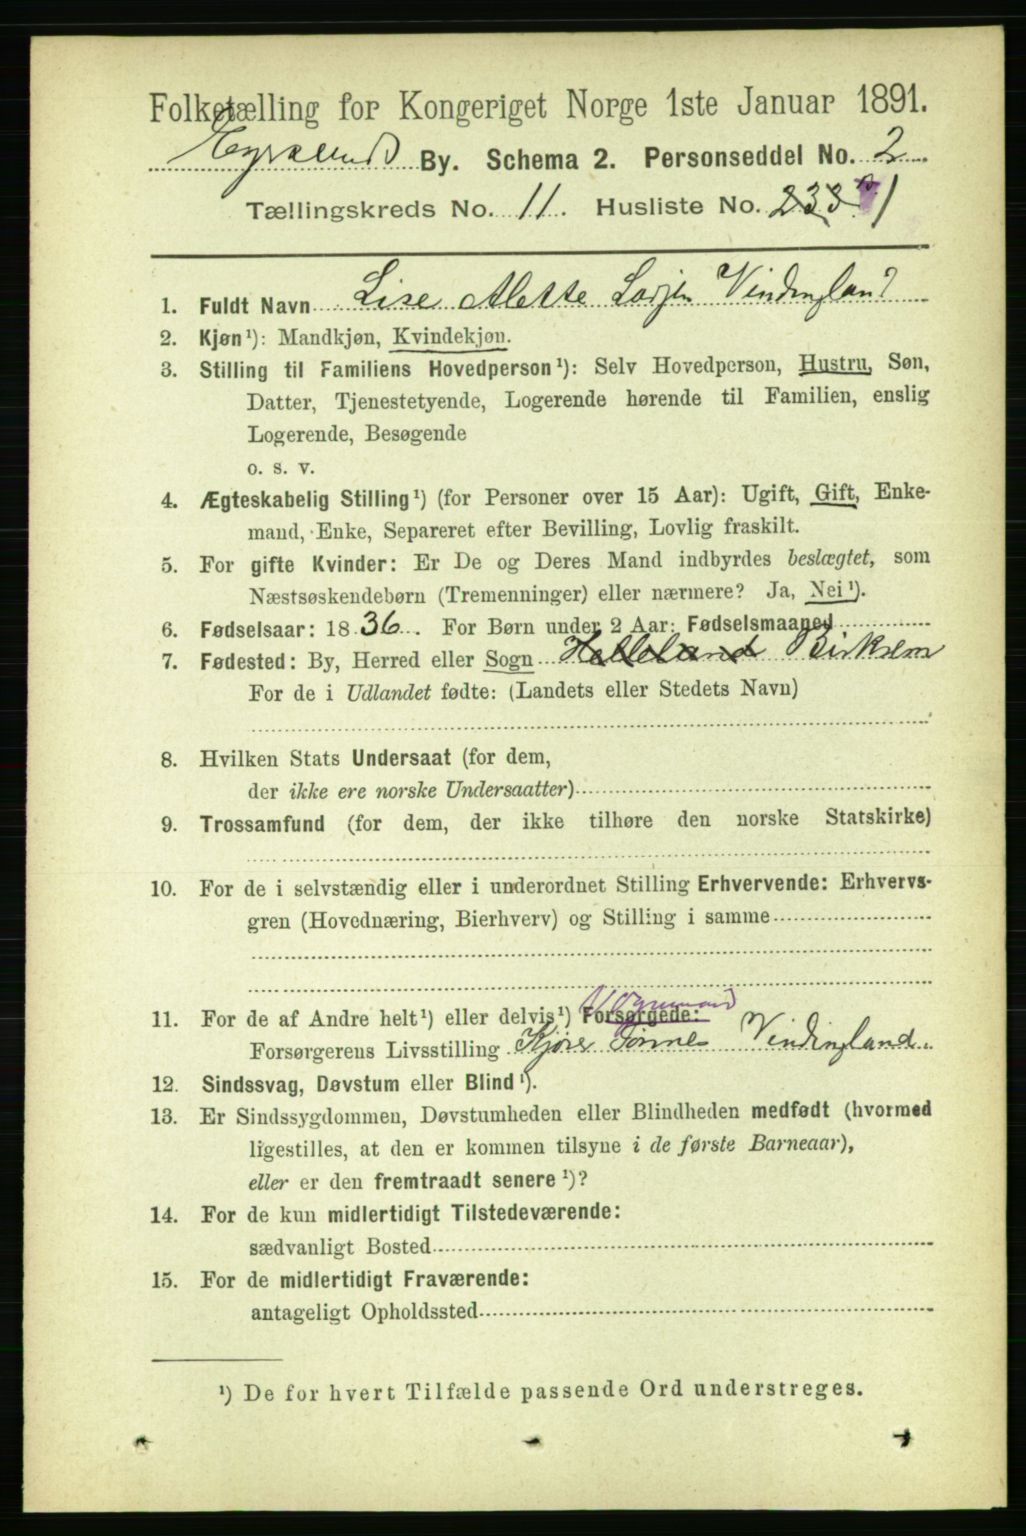 Folketælling for Kongeriget Norge 1ste Januar 1891.
Egersunds By. Schema 2. Personseddel No. 2
Tællingskreds No. 11. Husliste No. 233 1
1. Fuldt Navn Lise Alette Vindingland
2. Kjøn¹): Mandkjøn, Kvindekjøn.
3. Stilling til Familiens Hovedperson¹): Selv Hovedperson, Hustru, Søn,
Datter, Tjenestetyende, Logerende hørende til Familien, enslig
Logerende, Besøgende
o. s. v.
4. Ægteskabelig Stilling¹) (for Personer over 15 Aar): Ugift, Gift, Enke-
mand, Enke, Separeret efter Bevilling, Lovlig fraskilt.
5. For gifte Kvinder: Er De og Deres Mand indbyrdes beslægtet, som
Næstsøskendebørn (Tremenninger) eller nærmere? Ja, Nei¹).
6. Fødselsaar: 1836. For Børn under 2 Aar: Fødselsmaaned
7. Fødested: By, Herred eller Sogn Helleland Birkrem
For de i Udlandet fødte: (Landets eller Stedets Navn)
8. Hvilken Stats Undersaat (for dem,
der ikke ere norske Undersaatter)
9. Trossamfund (for dem, der ikke tilhøre den norske Statskirke)
10. For de i selvstændig eller i underordnet Stilling Erhvervende: Erhvervs-
gren (Hovednæring, Bierhverv) og Stilling i samme
Vognmand
11. For de af Andre helt¹) eller delvis¹) Forsørgede:
Forsørgerens Livsstilling Kjører Tønnes Vindingland
12. Sindssvag, Døvstum eller Blind¹).
13. Er Sindssygdommen, Døvstumheden eller Blindheden medfødt (hvormed
ligestilles, at den er kommen tilsyne i de første Barneaar),
eller er den fremtraadt senere¹)?
14. For de kun midlertidigt Tilstedeværende:
sædvanligt Bosted
15. For de midlertidigt Fraværende:
antageligt Opholdssted
¹) De for hvert Tilfælde passende Ord understreges.